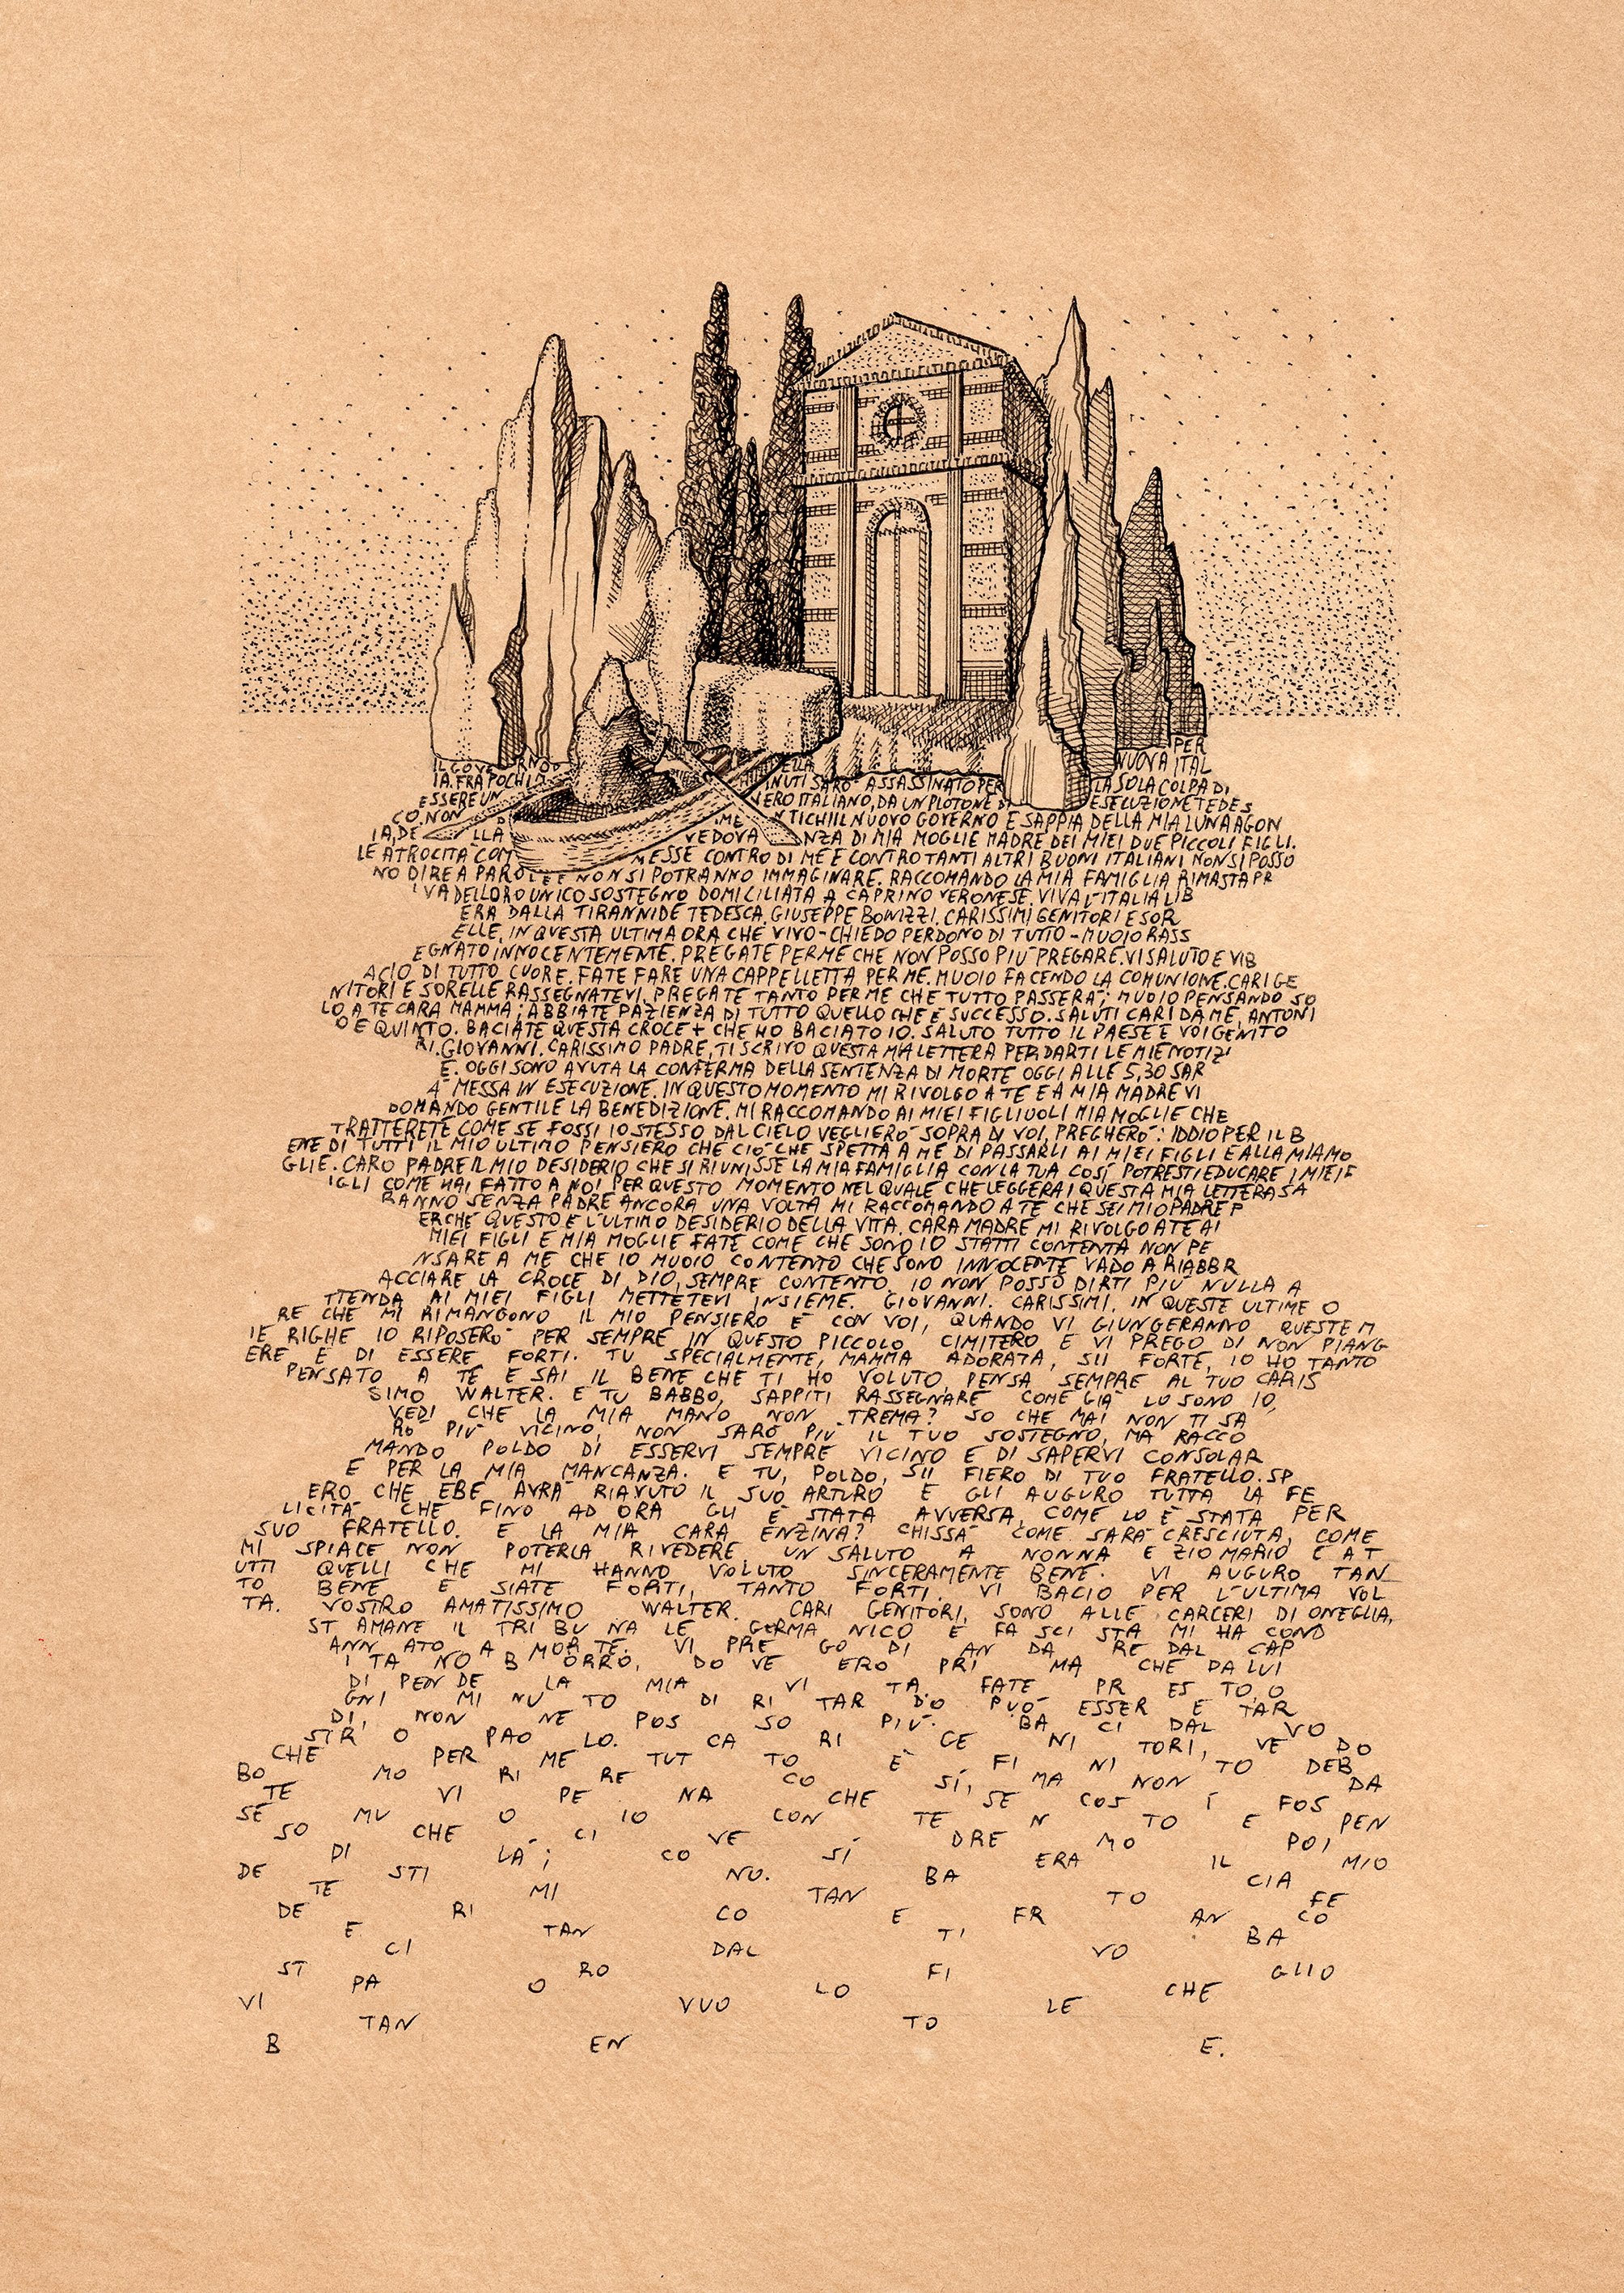 PER
IL GOVE RNO D ELLA NUOVA ITAL
IA. FRA POCHI M INUTI SARÒ ASSASSINATO PER LA SOLA COLPA DI
ESSERE UN VERO ITALIANO, DA UN PLOTONE DI ESECUZIONE TEDES
CO. NON D IME NTICHI IL NUOVO GOVERNO E SAPPIA DELLA MIA LUNA AGON
IA, DE LLA VEDOVA NZA DI MIA MOGLIE MADRE DEI MIEI DUE PICCOLI FIGLI.
LE ATROCITÀ COM MESSE CONTRO DI ME E CONTRO TANTI ALTRI BUONI ITALIANI NON SI POSSO
NO DIRE A PAROLE E NON SI POTRANNO IMMAGINARE. RACCOMANDO LA MIA FAMIGLIA RIMASTA PR
IVA DEL LORO UNICO SOSTEGNO DOMICILIATA A CAPRINO VERONESE. VIVA L'ITALIA LIB
ERA DALLA TIRANNIDE TEDESCA. GIUSEPPE BONIZZI. CARISSIMI GENITORI E SOR
ELLE, IN QUESTA ULTIMA ORA CHE VIVO - CHIEDO PERDONO DI TUTTO - MUOIO RASS
EGNATO INNOCENTEMENTE. PREGATE PER ME CHE NON POSSO PIÙ PREGARE. VI SALUTO E VI B
ACIO DI TUTTO CUORE. FATE FARE UNA CAPPELLETTA PER ME. MUOIO FACENDO LA COMUNIONE. CARI GE
NITORI E SORELLE RASSEGNATEVI. PREGATE TANTO PER ME CHE TUTTO PASSERÀ; MUOIO PENSANDO SO
LO A TE CARA MAMMA; ABBIATE PAZIENZA DI TUTTO QUELLO CHE È SUCCESSO. SALUTI CARI DA ME, ANTONI
O E QUINTO. BACIATE QUESTA CROCE + CHE HO BACIATO IO. SALUTO TUTTO IL PAESE E VOI GENITO
RI. GIOVANNI. CARISSIMO PADRE, TI SCRIVO QUESTA MIA LETTERA PER DARTI LE MIE NOTIZI
E. OGGI SONO AVUTA LA CONFERMA DELLA SENTENZA DI MORTE OGGI ALLE 5,30 SAR
À MESSA IN ESECUZIONE. IN QUESTO MOMENTO MI RIVOLGO A TE E A MIA MADRE VI
DOMANDO GENTILE LA BENEDIZIONE. MI RACCOMANDO AI MIEI FIGLIUOLI MIA MOGLIE CHE
TRATTERETE COME SE FOSSI IO STESSO DAL CIELO VEGLIERÒ SOPRA DI VOI, PREGHERÒ: IDDIO PER IL B
ENE DI TUTTI IL MIO ULTIMO PENSIERO CHE CIÒ CHE SPETTA A ME DI PASSARLI AI MIEI FIGLI E ALLA MIA MO
GLIE. CARO PADRE IL MIO DESIDERIO CHE SI RIUNISSE LA MIA FAMIGLIA CON LA TUA COSÍ POTRESTI EDUCARE I MIEI F
IGLI COME HAI FATTO A NOI PER QUESTO MOMENTO NEL QUALE CHE LEGGERAI QUESTA MIA LETTERA SA
RANNO SENZA PADRE ANCORA UNA VOLTA MI RACCOMANDO A TE CHE SEI MIO PADRE P
ERCHÉ QUESTO È L'ULTIMO DESIDERIO DELLA VITA. CARA MADRE MI RIVOLGO A TE AI
MIEI FIGLI E MIA MOGLIE FATE COME CHE SONO IO STATTI CONTENTA NON PE
NSARE A ME CHE IO MUOIO CONTENTO CHE SONO INNOCENTE VADO A RIABBR
ACCIARE LA CROCE DI DIO, SEMPRE CONTENTO. IO NON POSSO DIRTI PIÙ NULLA A
TTENDA AI MIEI FIGLI METTETEVI INSIEME. GIOVANNI. CARISSIMI, IN QUESTE ULTIME O
RE CHE MI RIMANGONO IL MIO PENSIERO È CON VOI, QUANDO VI GIUNGERANNO QUESTE M
IE RIGHE IO RIPOSERÒ PER SEMPRE IN QUESTO PICCOLO CIMITERO E VI PREGO DI NON PIANG
ERE E DI ESSERE FORTI. TU SPECIALMENTE, MAMMA ADORATA, SII FORTE, IO HO TANTO
PENSATO A TE E SAI IL BENE CHE TI HO VOLUTO. PENSA SEMPRE AL TUO CARIS
SIMO WALTER. E TU BABBO, SAPPITI RASSEGNARE COME GIÀ LO SONO IO,
VEDI CHE LA MIA MANO NON TREMA? SO CHE MAI NON TI SA
RÒ PIÙ VICINO, NON SARÒ PIÙ IL TUO SOSTEGNO, MA RACCO
MANDO POLDO DI ESSERVI SEMPRE VICINO E DI SAPERVI CONSOLAR
E PER LA MIA MANCANZA. E TU, POLDO, SII FIERO DI TUO FRATELLO. SP
ERO CHE EBE AVRÀ RIAVUTO IL SUO ARTURO E GLI AUGURO TUTTA LA FE
LICITÀ CHE FINO AD ORA GLI È STATA AVVERSA, COME LO È STATA PER
SUO FRATELLO. E LA MIA CARA ENZINA? CHISSÀ COME SARÀ CRESCIUTA, COME
MI SPIACE NON POTERLA RIVEDERE. UN SALUTO A NONNA E ZIO MARIO E A T
UTTI QUELLI CHE MI HANNO VOLUTO SINCERAMENTE BENE. VI AUGURO TAN
TO BENE E SIATE FORTI, TANTO FORTI. VI BACIO PER L'ULTIMA VOL
TA. VOSTRO AMATISSIMO WALTER. CARI GENITORI, SONO ALLE CARCERI DI ONEGLIA,
ST AMANE IL TRI BU NA LE GERMA NICO E FA SCI STA MI HA COND
ANN ATO A MOR TE. VI PRE GO DI AN DA RE DAL CAP
I TA NO B ORRO, DO VE ERO PRI MA CHE DA LUI
DI PEN DE LA MIA VI TA. FATE PR ES TO, O
GNI MI NU TO DI RI TAR DO PUÒ ESSER E TAR
DI, NON NE POS SO PIÙ. BA CI DAL VO
STR O PAO LO. CA RI GE NI TORI, VE DO
CHE PER ME TUT TO È FI NI TO DEB
BO MO RI RE CO SÍ, MA NON DA
TE VI PE NA CHE SE COS Í FOS
SE MU O IO CON TE N TO E PEN
SO CHE CI VE DRE MO POI
DI LÀ; CO SÍ ERA IL MIO
DE STI NO. BA CIA
TE MI TAN TO FE
DE RI CO E FR AN CO
E TAN TI BA
CI DAL VO
ST RO FI GLIO
PA O LO CHE
VI VUO LE
TAN TO
B EN E.